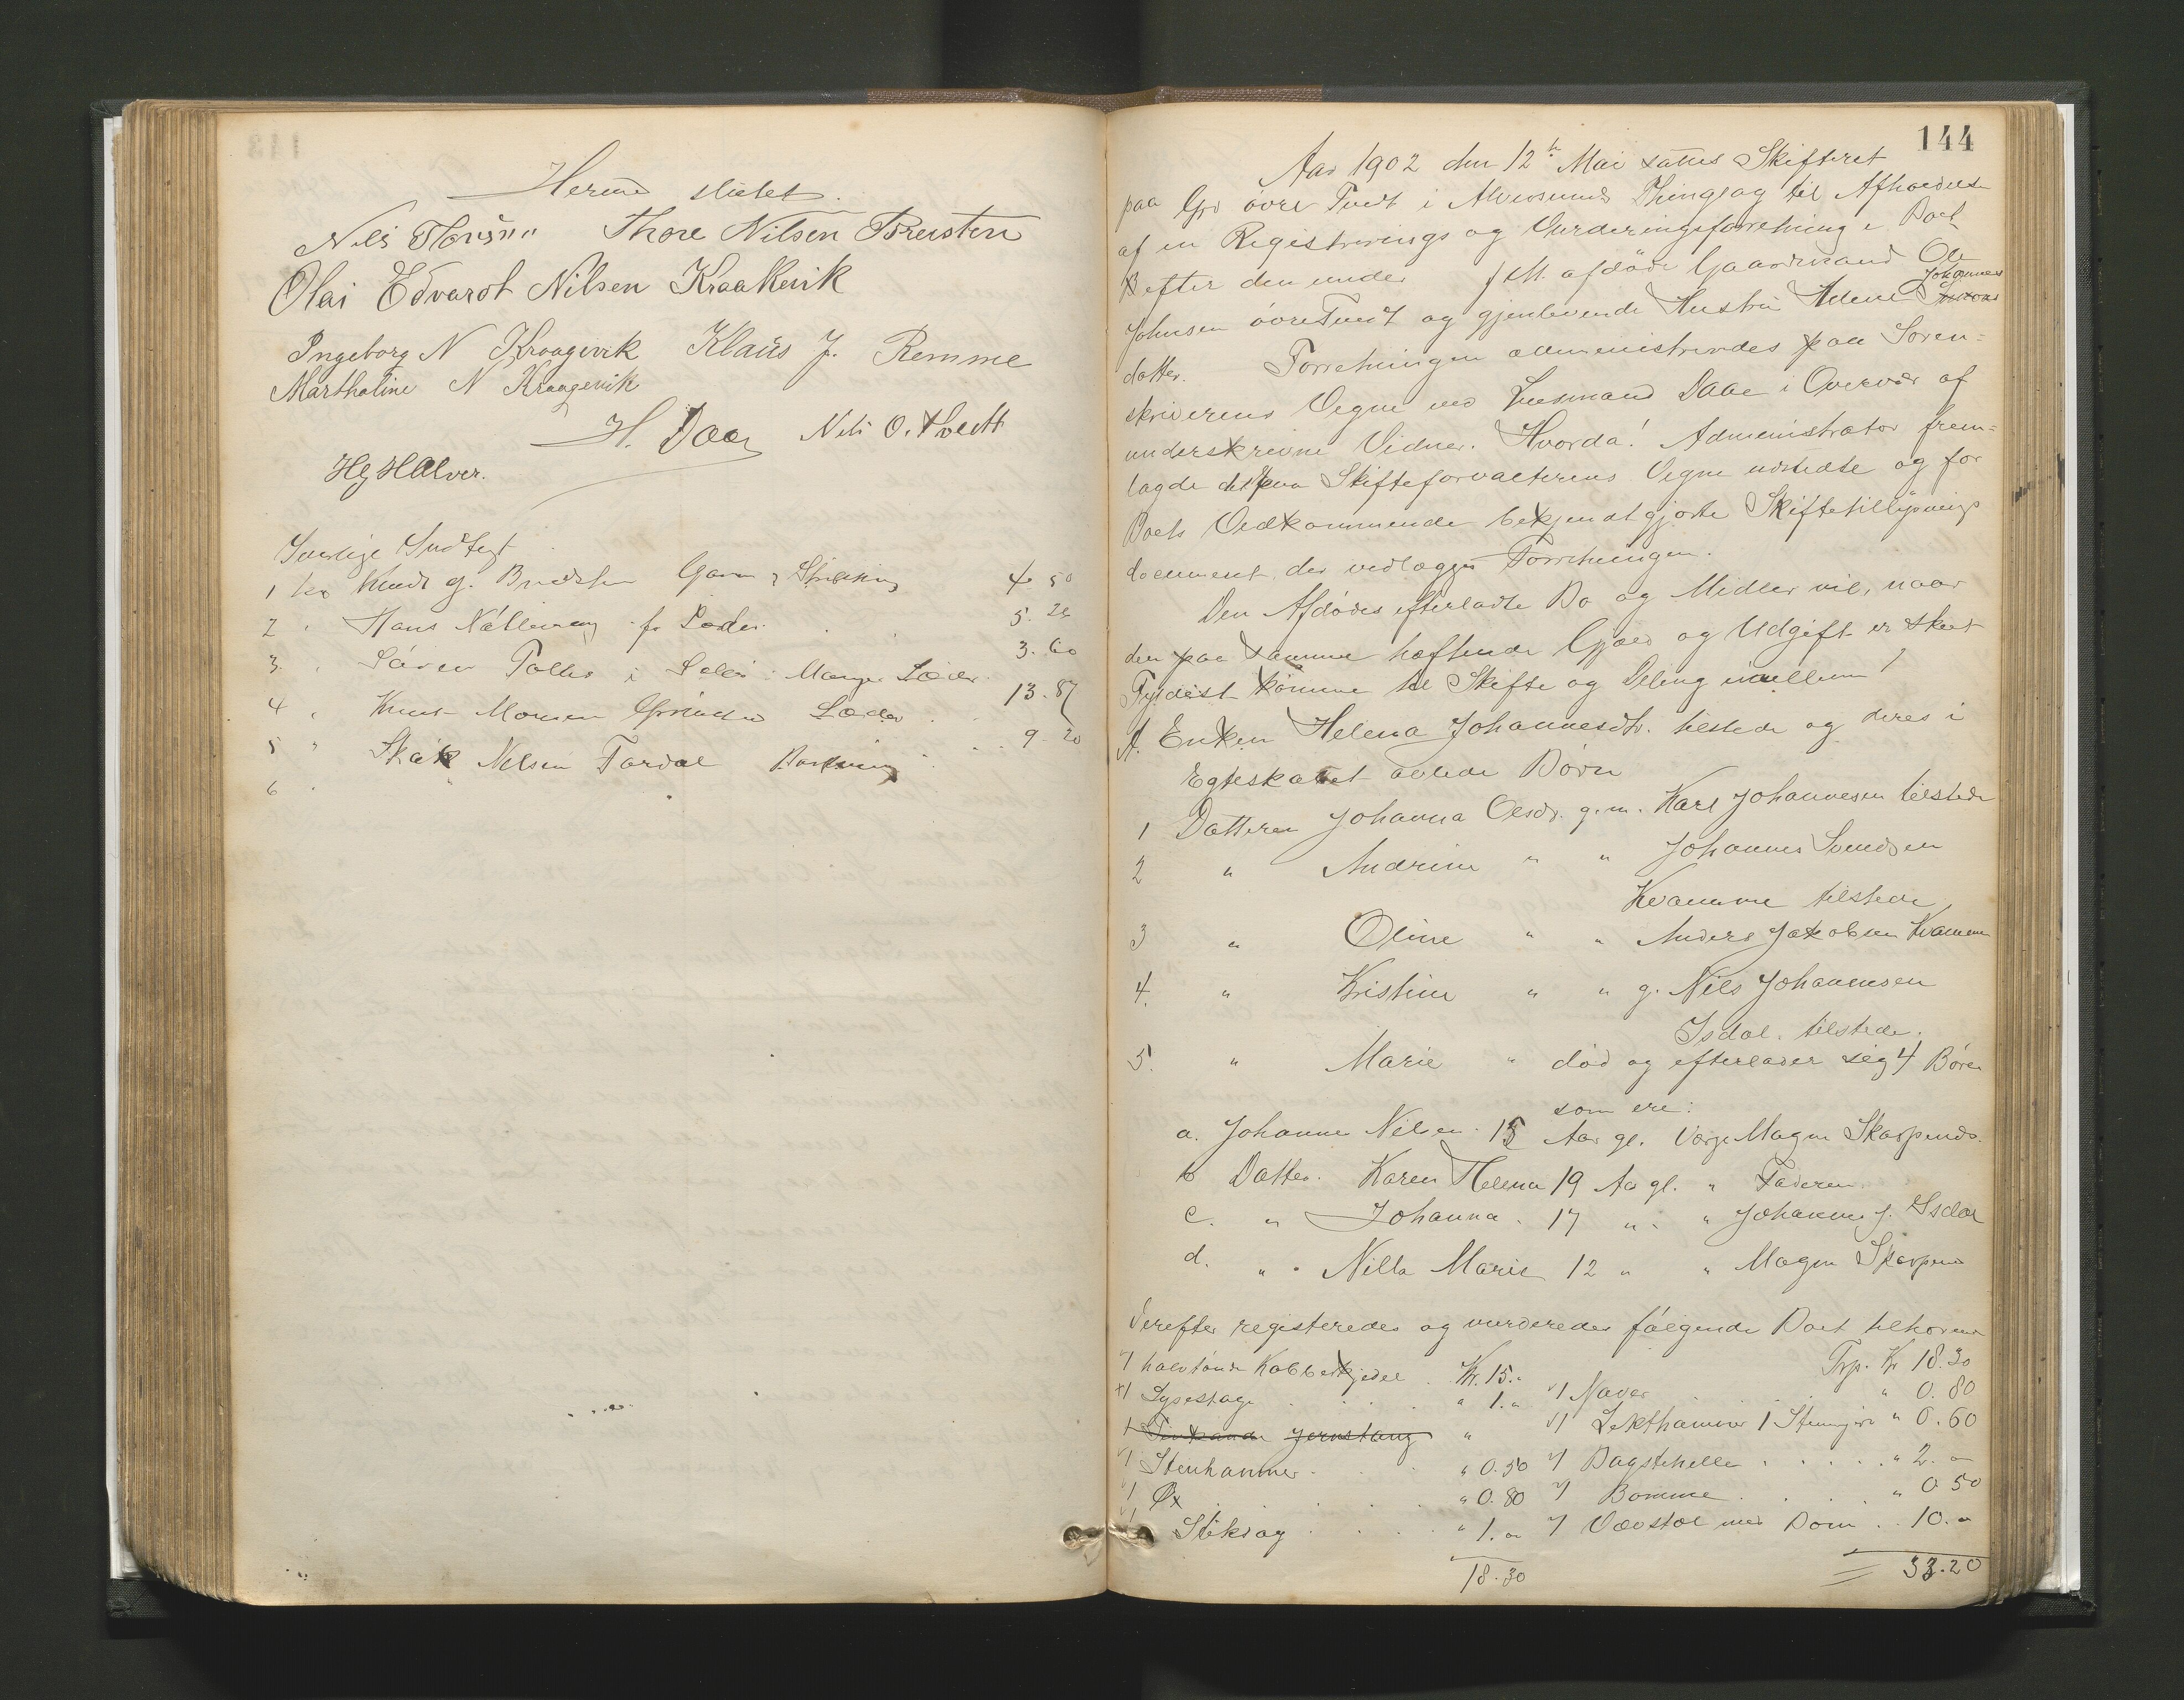 Hermed sluttet.
Nils Thore Nilsen Breisten
Olai Edvardt Nilsen Kraakevik
Ingeborg N Kraagevik Klaus J. Remme
Marthaline N Kraagevik
H. Daae Nils O. Tvedt
Hg Halver.
1 Knud G. 4. 50
2 " Hans f. Læder 5. 26
3. " Søren i Manger Læder 3. 60
4 " Knut Monsen Læder 13. 87
5 " Nilsen Fordal 9. 20
6 "
144
Aar 1902 den 12te Mai sattes Skifteret
paa Grd øvre Tvedt i Alversunds Thinglag til Afholdelse
af en Registrerings og Vurderingsforretning i Boet
efter den under f M. afdøde Gaardmand Ole
Johnsen øvreTvedt og gjenlevende Hustru Johannes
datter. Forretningen administreredes paa Soren=
skriverens Vegne ved Lensmand Daae i Overvær af
underskrevne Vidner. Hvorda! Administrator frem=
lagde det paa Skifteforvalterens Vegne udstedte og for
Boets Vedkommende bekjendtgjorte Skiftetillysnings
document, der vedlægges Forretningen.
Den Afdødes efterladte Bo og Midler vil, naar
den paa samme heftende Gjæld og Udgift er skeet
Fyldest komme til Skifte og Deling imellem!
A. Enken Helena Johannesdtr. tilstede og deres i
Egteskabet avlede Børn
1 Datteren Johanna Olsdr. g. m. Karl Johannesen tilstede
2 " Andrine " " Johannes Svendsen
Kvamme tilstede
3 " Oline " " Anders Jakobsen Kvamme
4. " Kristine " " g. Nils Johannesen
Isdal. tilstede.
5. " Marie " død og efterlader sig 4 Børn
som ere:
a. Johanne Nilsen 15 Aar gl. Verge Magne Skarpenes.
b Datter. Karen Helena 19 Aar gl. " Faderen
c. " Johanna. 17 " " " Johannes J. Isdal
d. " " Nilla Marie 12 " " Magne Skarpenes
Derefter registeredes og vurderedes følgende Boet tilhørende
1 halvtønde Kobberkjedel . Kr. 15." Trp. Kr 18.30
1 Lysestage . . . . " 1." 1 Naver . . . " 0. 80
1 Jernstang " 1 Lekthammer 1 " 0. 60
1 Stenhammer . . . " 0. 50 1 Bagstehelle . . . . " 2. "
1 Øx . . . . " 0. 80 1 Bomme . . . " 0 50
1 Stiksag . . . . " 1. " 1 Vævstol med Bom . . 10. "
18. 30 33. 20